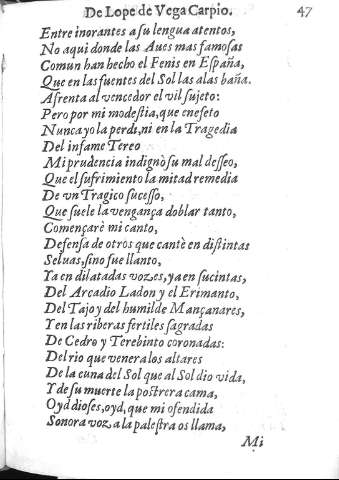 De Lope de Vega Carpio. 47
Entre inorantes a su lengua atentos,
No aqui donde las Aues mas famosas
Comun han hecho el Fenis en España,
Que en las fuentes del Sol las alas baña.
Afrenta al vencedor el vil sujeto:
Pero por mi modestia, que en efeto
Nunca yo la perdi, ni en la Tragedia
Del infame Tereo
Mi prudencia indignò su mal desseo,
Que el sufrimiento la mitad remedia
De vn Tragico sucesso,
Que suele la vengança doblar tanto,
Començarè mi canto,
Defensa de otros que cantè en distintas
Seluas, sino fue llanto,
Ya en dilatadas vozes, ya en sucintas,
Del Arcadio Ladon y el Erimanto,
Del Tajo y del humilde Mançanares,
Y en las riberas fertiles sagradas
De Cedro y Terebinto coronadas:
Del rio que venera los altares
De la cuna del Sol que al Sol dio vida,
Y de su muerte la postrera cama,
Oyd dioses, oyd, que mi ofendida
Sonora voz a la palestra os llama,
Mi